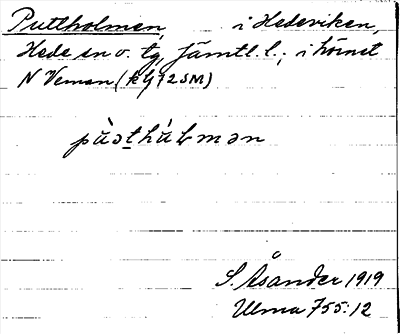 Puttholmen, i Hedeviken,
Hede sn o. tg, Jämtl. l.; i hörnet
N Veman
pùsthùlmən
S. Åsander 1919
Ulma 755:12